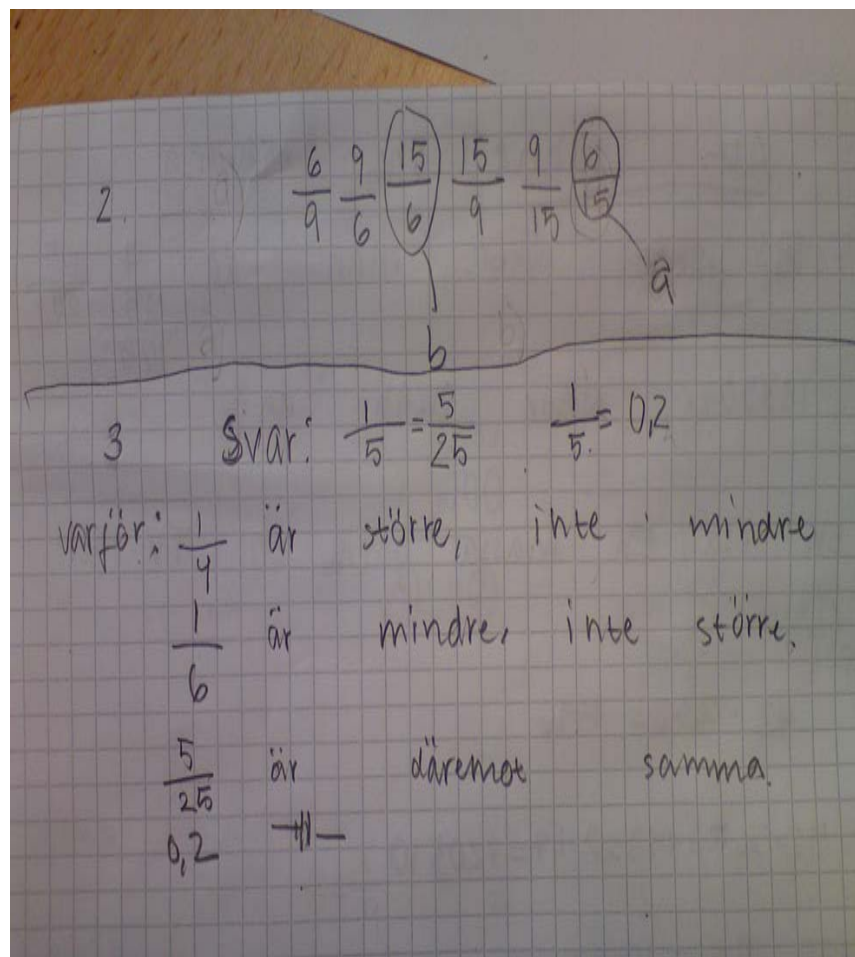 2. 6/9 9/6 15/6 15/9 9/15 6/15
a
b
3 Svar: 1/5 = 5/25 1/5 = 0,2
varför: 1/4 är större, inte mindre
1/6 är mindre, inte större.
5/25 är däremot samma.
0,2 —||—